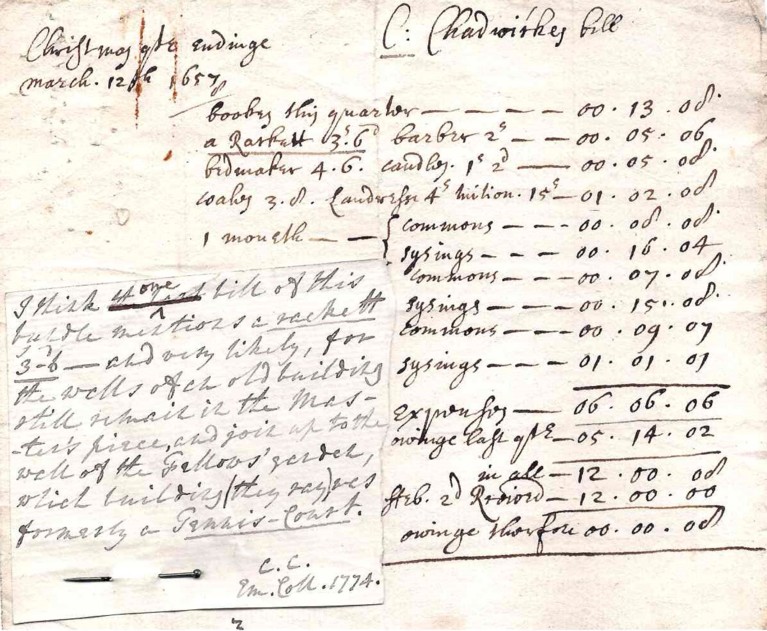 C: Chadwickes bill
Christmas qtr Endinge
march. 12th 1657/8
bookes this quarter — — — — 00 · 13 · 08
a Rackett 3s 6d barber 2s — — 00 · 05 · 06
bedmaker 4 . 6 . candles . 1s 2d — 00 · 05 · 08
coales 3 . 8 . Landresse 4s tuition . 15s — 01 · 02 · 08
1 moneth — — { commons — — — 00 · 08 · 08
sysings — — — 00 · 16 · 04
commons — — — 00 · 07 · 08
sysings — — — 00 · 15 · 08
commons — — — 00 · 09 · 07
sysings — — — 01 · 01 · 01
Expenses — 06 · 06 · 06
owinge last qtr — 05 · 14 · 02
in all — 12 · 00 · 08
feb. 2d Receivd — 12 · 00 · 00
owinge therfore 00 · 00 · 08
I think one bill of this
bundle mentions a rackett
3-6 — and very likely, for
the walls of an old building
still remain in the Mas-
-ter's piece, and join up to the
wall of the Fellows' garden,
which building (they say) was
formerly a Tennis-Court.
C. C.
Em. Coll . 1774.
2